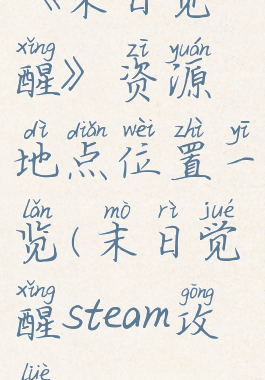 《末日觉
xǐng zī yuán
醒》资源
dì diǎn wèi zhì yī
地点位置一
lǎn mò rì jué
览(末日觉
xǐng gōng
醒steam攻
lüè